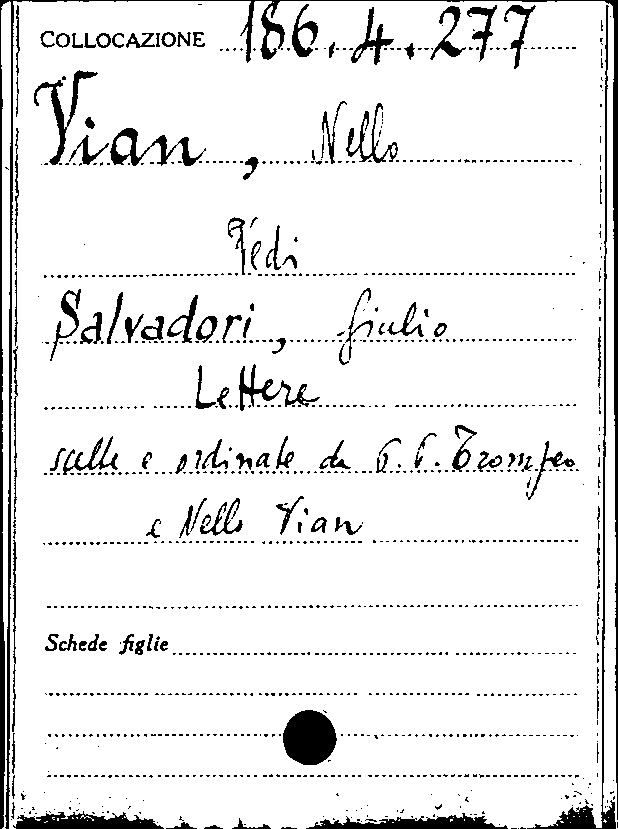 COLLOCAZIONE 186.4.277
Vian, Nello
Vedi
Salvadori, Giulio
Lettere
scelte e ordinate da P. P. Trompeo
e Nello Vian
Schede figlie